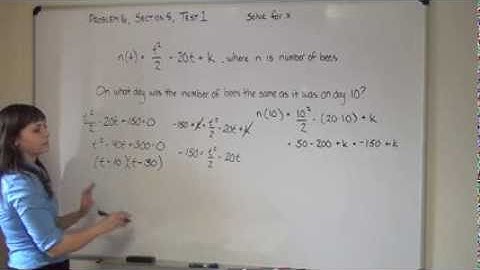 PROBLEM 6, SECTION 5, TEST 1
Solve for x
n(t) = t²/2 - 20t + k, where n is number of bees
On what day was the number of bees the same as it was on day 10?
n(10) = 10²/2 - (20·10) + k
= 50 - 200 + k = -150 + k
-150 + k = t²/2 - 20t + k
-150 = t²/2 - 20t
t²/2 - 20t + 150 = 0
t² - 40t + 300 = 0
(t - 10)(t - 30)